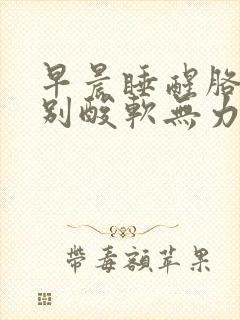 早晨睡醒胳
别酸軟無力
帶毒額苹果